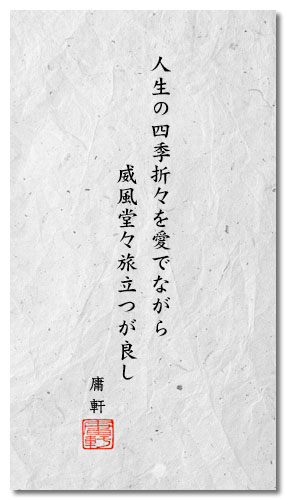 人生の四季折々を愛でながら
威風堂々旅立つが良し
庸軒
庸軒